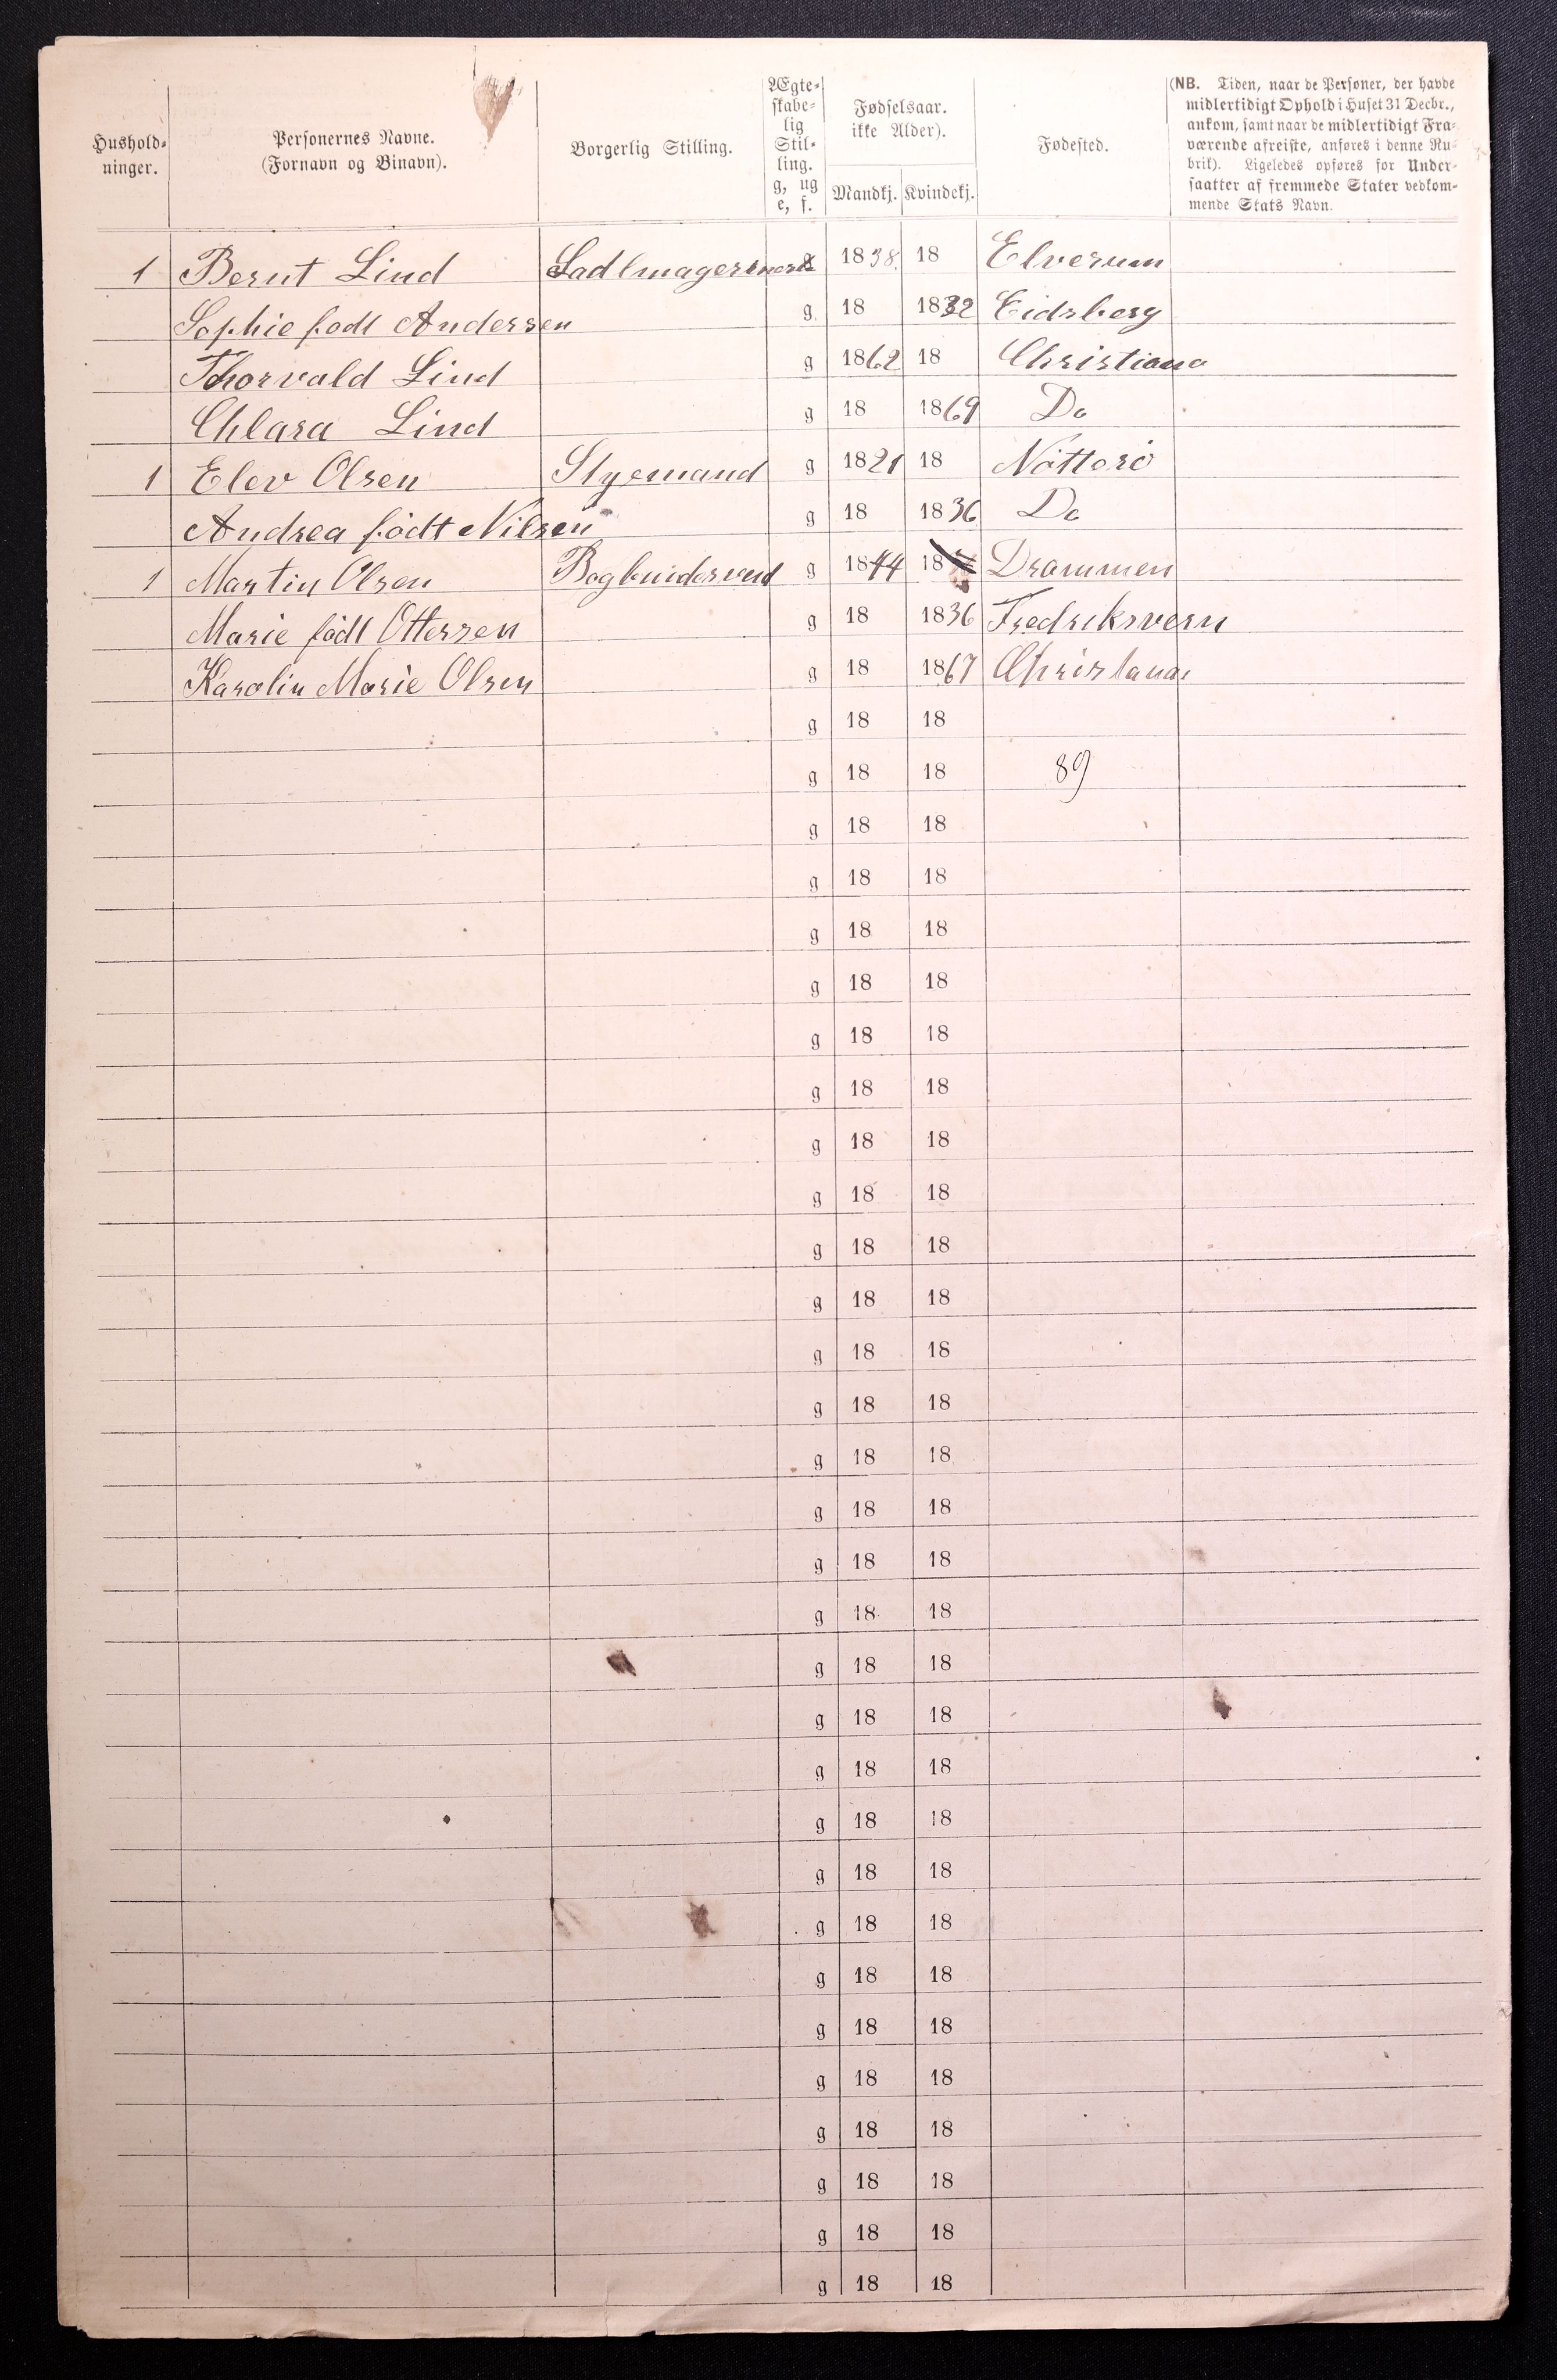 Hushold-
ninger.
Personernes Navne.
(Fornavn og Binavn).
Borgerlig Stilling.
Ægte-
skabe-
lig
Stil-
ling.
g, ug
e, f.
Fødselsaar.
ikke Alder).
Mandkj. Kvindekj.
Fødested.
(NB. Tiden, naar de Personer, der havde
midlertidigt Ophold i Huset 31 Decbr.,
ankom, samt naar de midlertidigt Fra-
værende afreiste, anføres i denne Ru-
brik). Ligeledes opføres for Under-
saatter af fremmede Stater vedkom-
mende Stats Navn.
1 Bernt Lind 1838 18 Elverum
Sophie fodt Andersen g 18 1832 Eidsberg
Thorvald Lind g 1862 18 Christiana
Chlara Lind g 18 1869 Do
1 Elev Olsen Styemand g 1821 18 Nötterö
Andrea födt Nilsen g 18 1836 Do
1 Martin Olsen g 1844 18 Drammen
Marie födt Ottersen g 18 1836 Fredriksvern
Karolin Marie Olsen g 18 1867 Christana
g 18 18
g 18 18 89
g 18 18
g 18 18
g 18 18
g 18 18
g 18 18
g 18 18
g 18 18
g 18 18
g 18 18
g 18 18
g 18 18
g 18 18
g 18 18
g 18 18
g 18 18
g 18 18
g 18 18
g 18 18
g 18 18
g 18 18
g 18 18
g 18 18
g 18 18
g 18 18
g 18 18
g 18 18
g 18 18
g 18 18
g 18 18